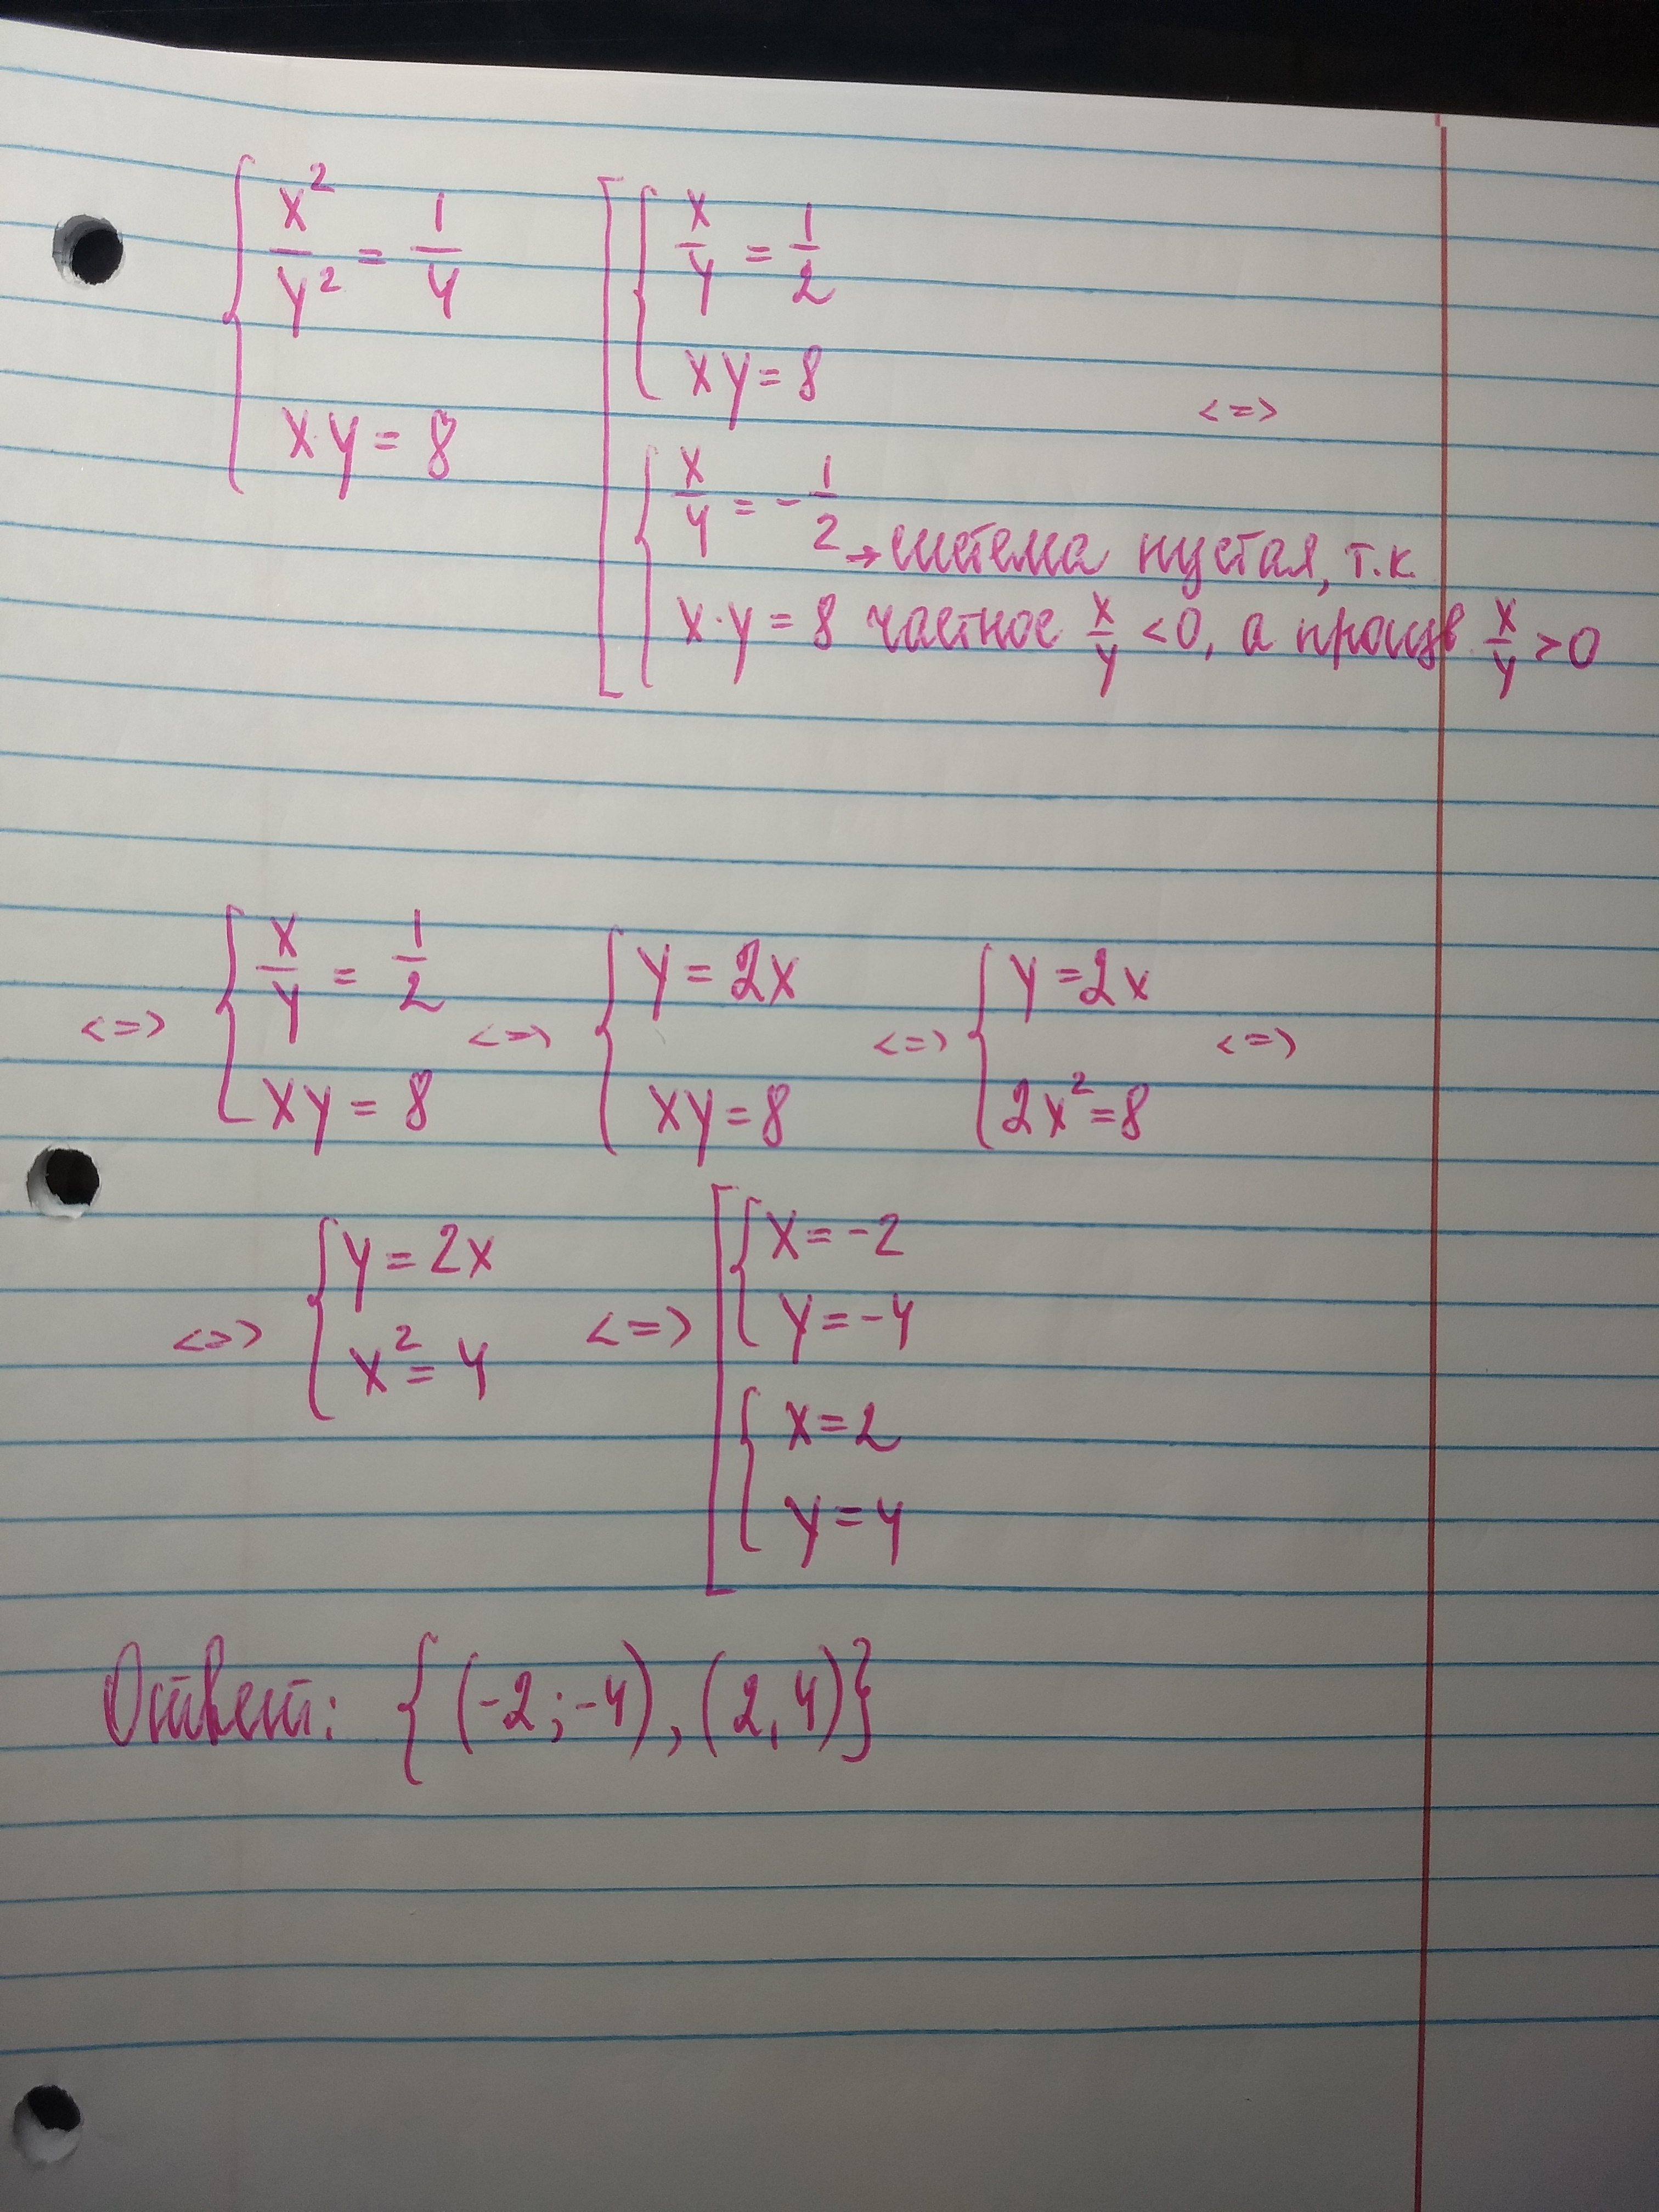 { x²/y² = 1/4
x·y = 8
[ { x/y = 1/2
xy = 8
<=>
{ x/y = -1/2 → система пустая, т.к
x·y = 8 частное x/y < 0, а произв x/y > 0
<=> { x/y = 1/2 <=> { y = 2x <=> { y = 2x <=>
xy = 8 xy = 8 2x² = 8
<=> { y = 2x <=> [ { x = -2
x² = 4 y = -4
{ x = 2
y = 4
Ответ: { (-2; -4), (2, 4) }